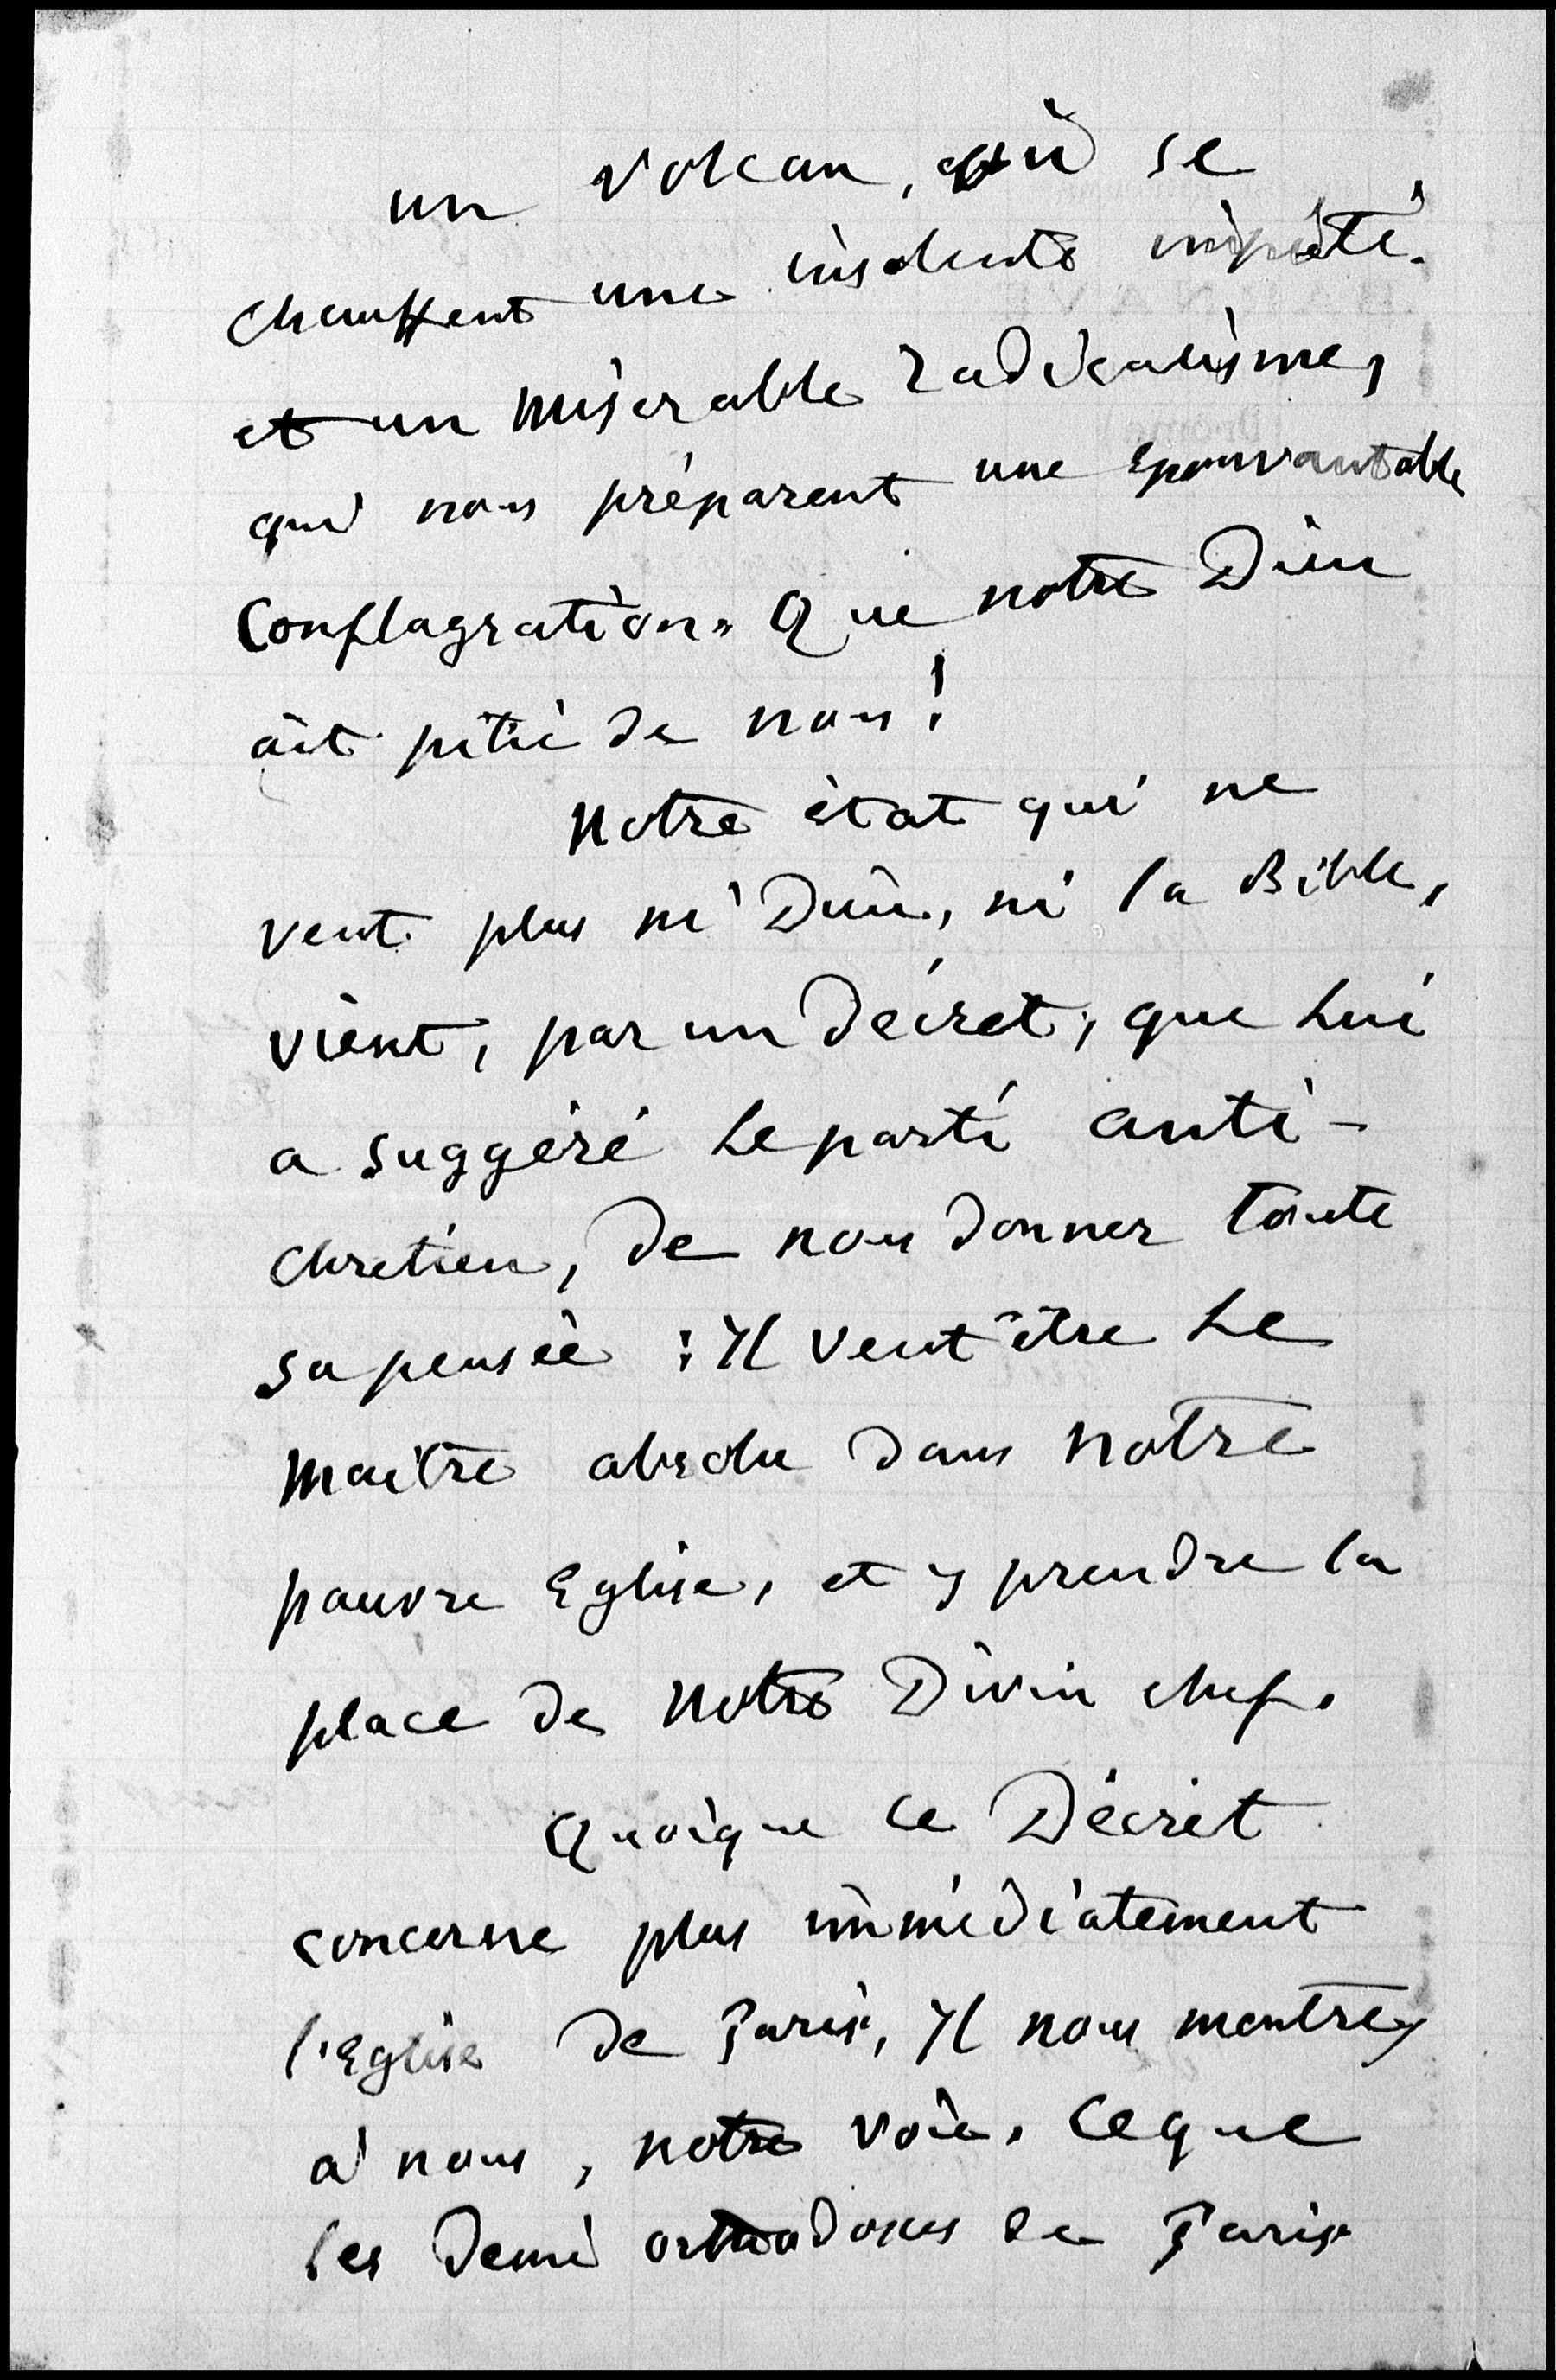 un volcan, où se
chauffent une insolente impiété
et un misérable radicalisme,
qui nous préparent une épouvantable
Conflagration. Que notre Dieu
ait pitié de nous!
Notre état qui ne
veut plus ni Dieu, ni la Bible,
vient, par un décret, que Lui
a suggéré Le parti anti-
chretien, de nous donner toute
sa pensée : Il veut être Le
maitre absolu dans notre
pauvre Eglise, et y prendre la
place de notre Divin chef.
Quoique ce Décret
concerne plus immédiatement
l'Eglise de Paris, Il nous montre,
à nous, notre voie. Ce que
les demi orthodoxes de Paris